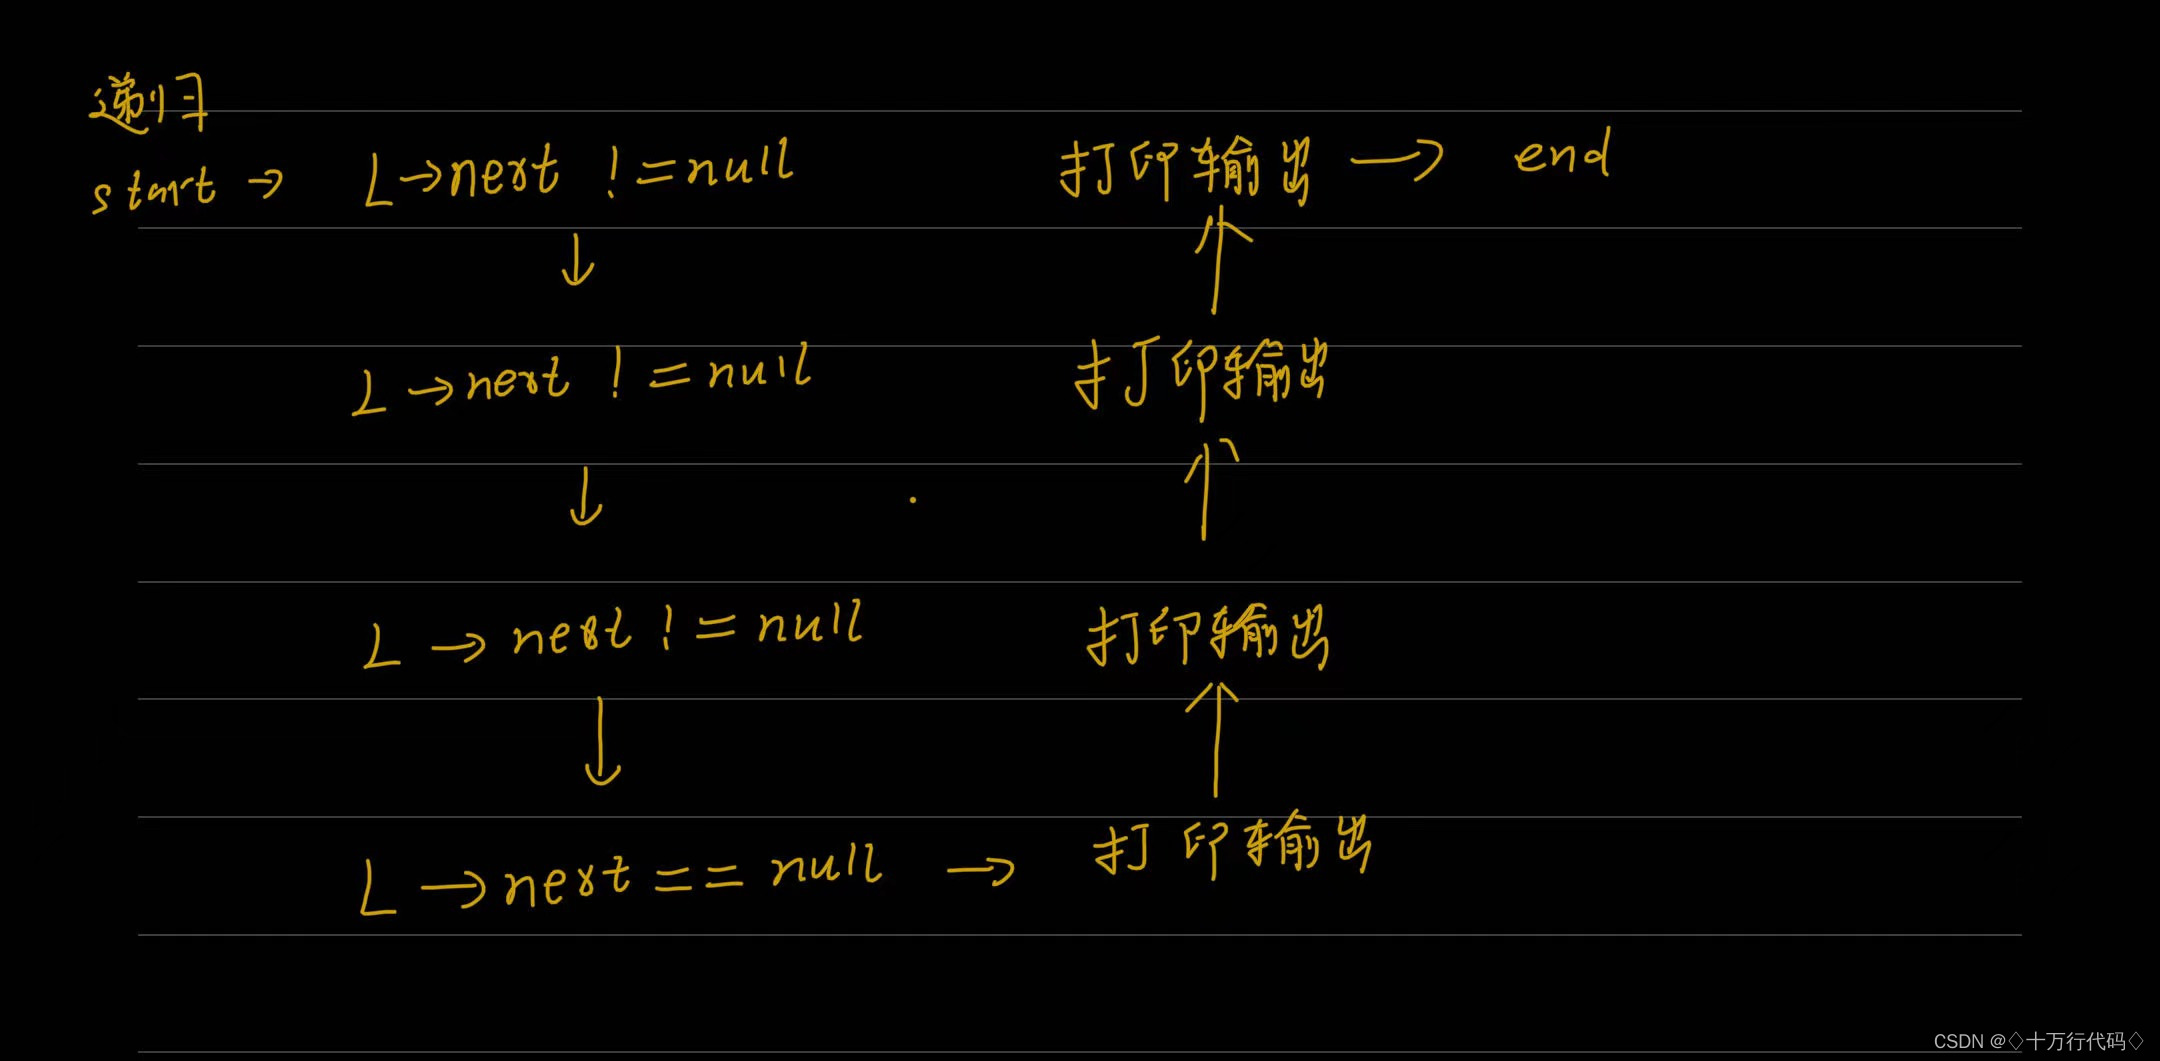 递归
start → L→next != null 打印输出 → end
↓ ↑
L→next != null 打印输出
↓ ↑
L→next != null 打印输出
↓ ↑
L→next == null → 打印输出
CSDN @♢十万行代码♢